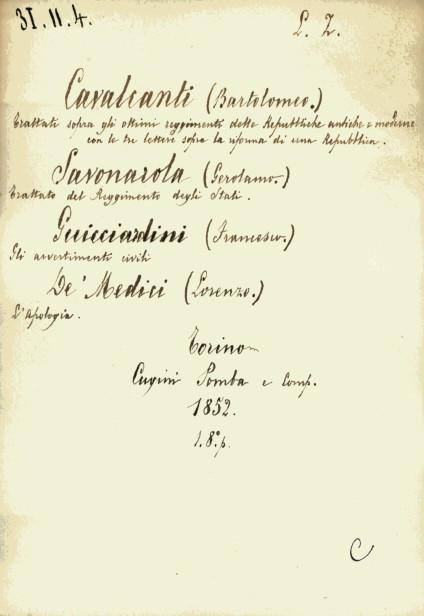 31.11.4.
L. Z.
Cavalcanti (Bartolomeo.)
Trattati sopra gli ottimi reggimenti delle Repubbliche antiche e moderne
con le tre lettere sopra la riforma di una Repubblica.
Savonarola (Gerolamo.)
Trattato del Reggimento degli Stati.
Guicciardini (Francesco.)
Gli avvertimenti civili
De' Medici (Lorenzo.)
L'Apologia.
Torino
Cugini Pomba e Comp.
1852.
1.8°p.
C